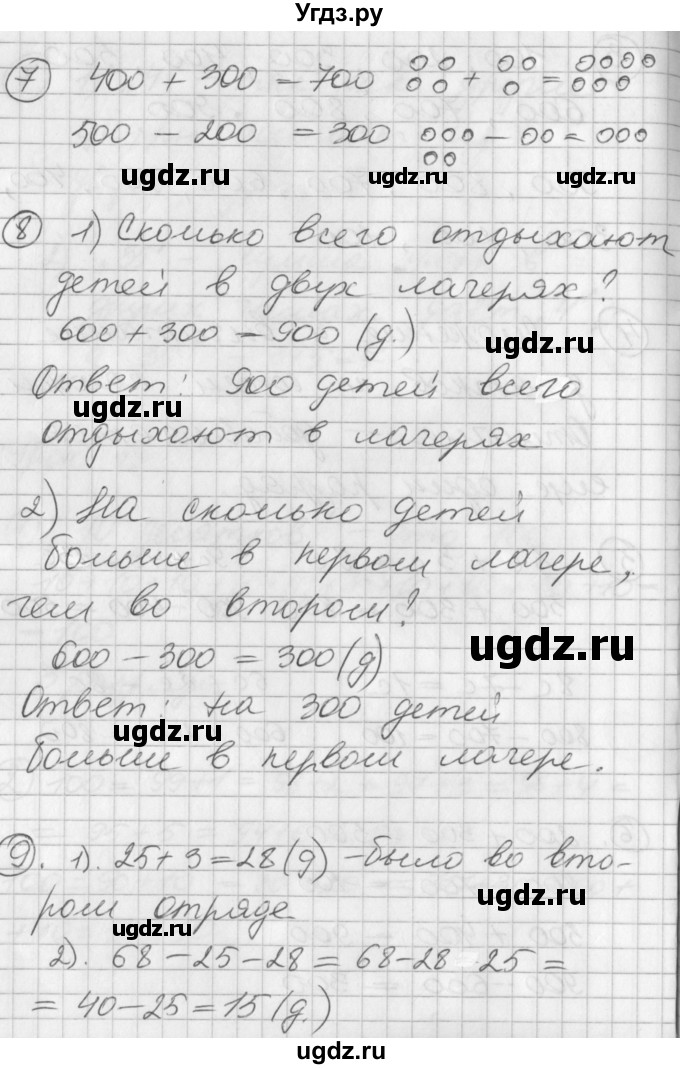 Угдз.ру
7 400 + 300 = 700 + =
500 - 200 = 300 - =
ugdz.ru ugdz.ru ugdz.ru
8 1) Сколько всего отдыхают
детей в двух лагерях?
600 + 300 = 900 (д.)
ugdz.ru
Ответ: 900 детей всего
ugdz.ru
отдыхают в лагерях
2) На сколько детей
больше в первом лагере,
чем во втором?
ugdz.ru
600 - 300 = 300 (д)
Ответ: на 300 детей
ugdz.ru
больше в первом лагере.
9. 1). 25 + 3 = 28 (д) - было во вто-
ugdz.ru
ром отряде
ugdz.ru
2). 68 - 25 - 28 = 68 - 28 25 =
= 40 - 25 = 15 (д.)
ugdz.ru
ugdz.ru